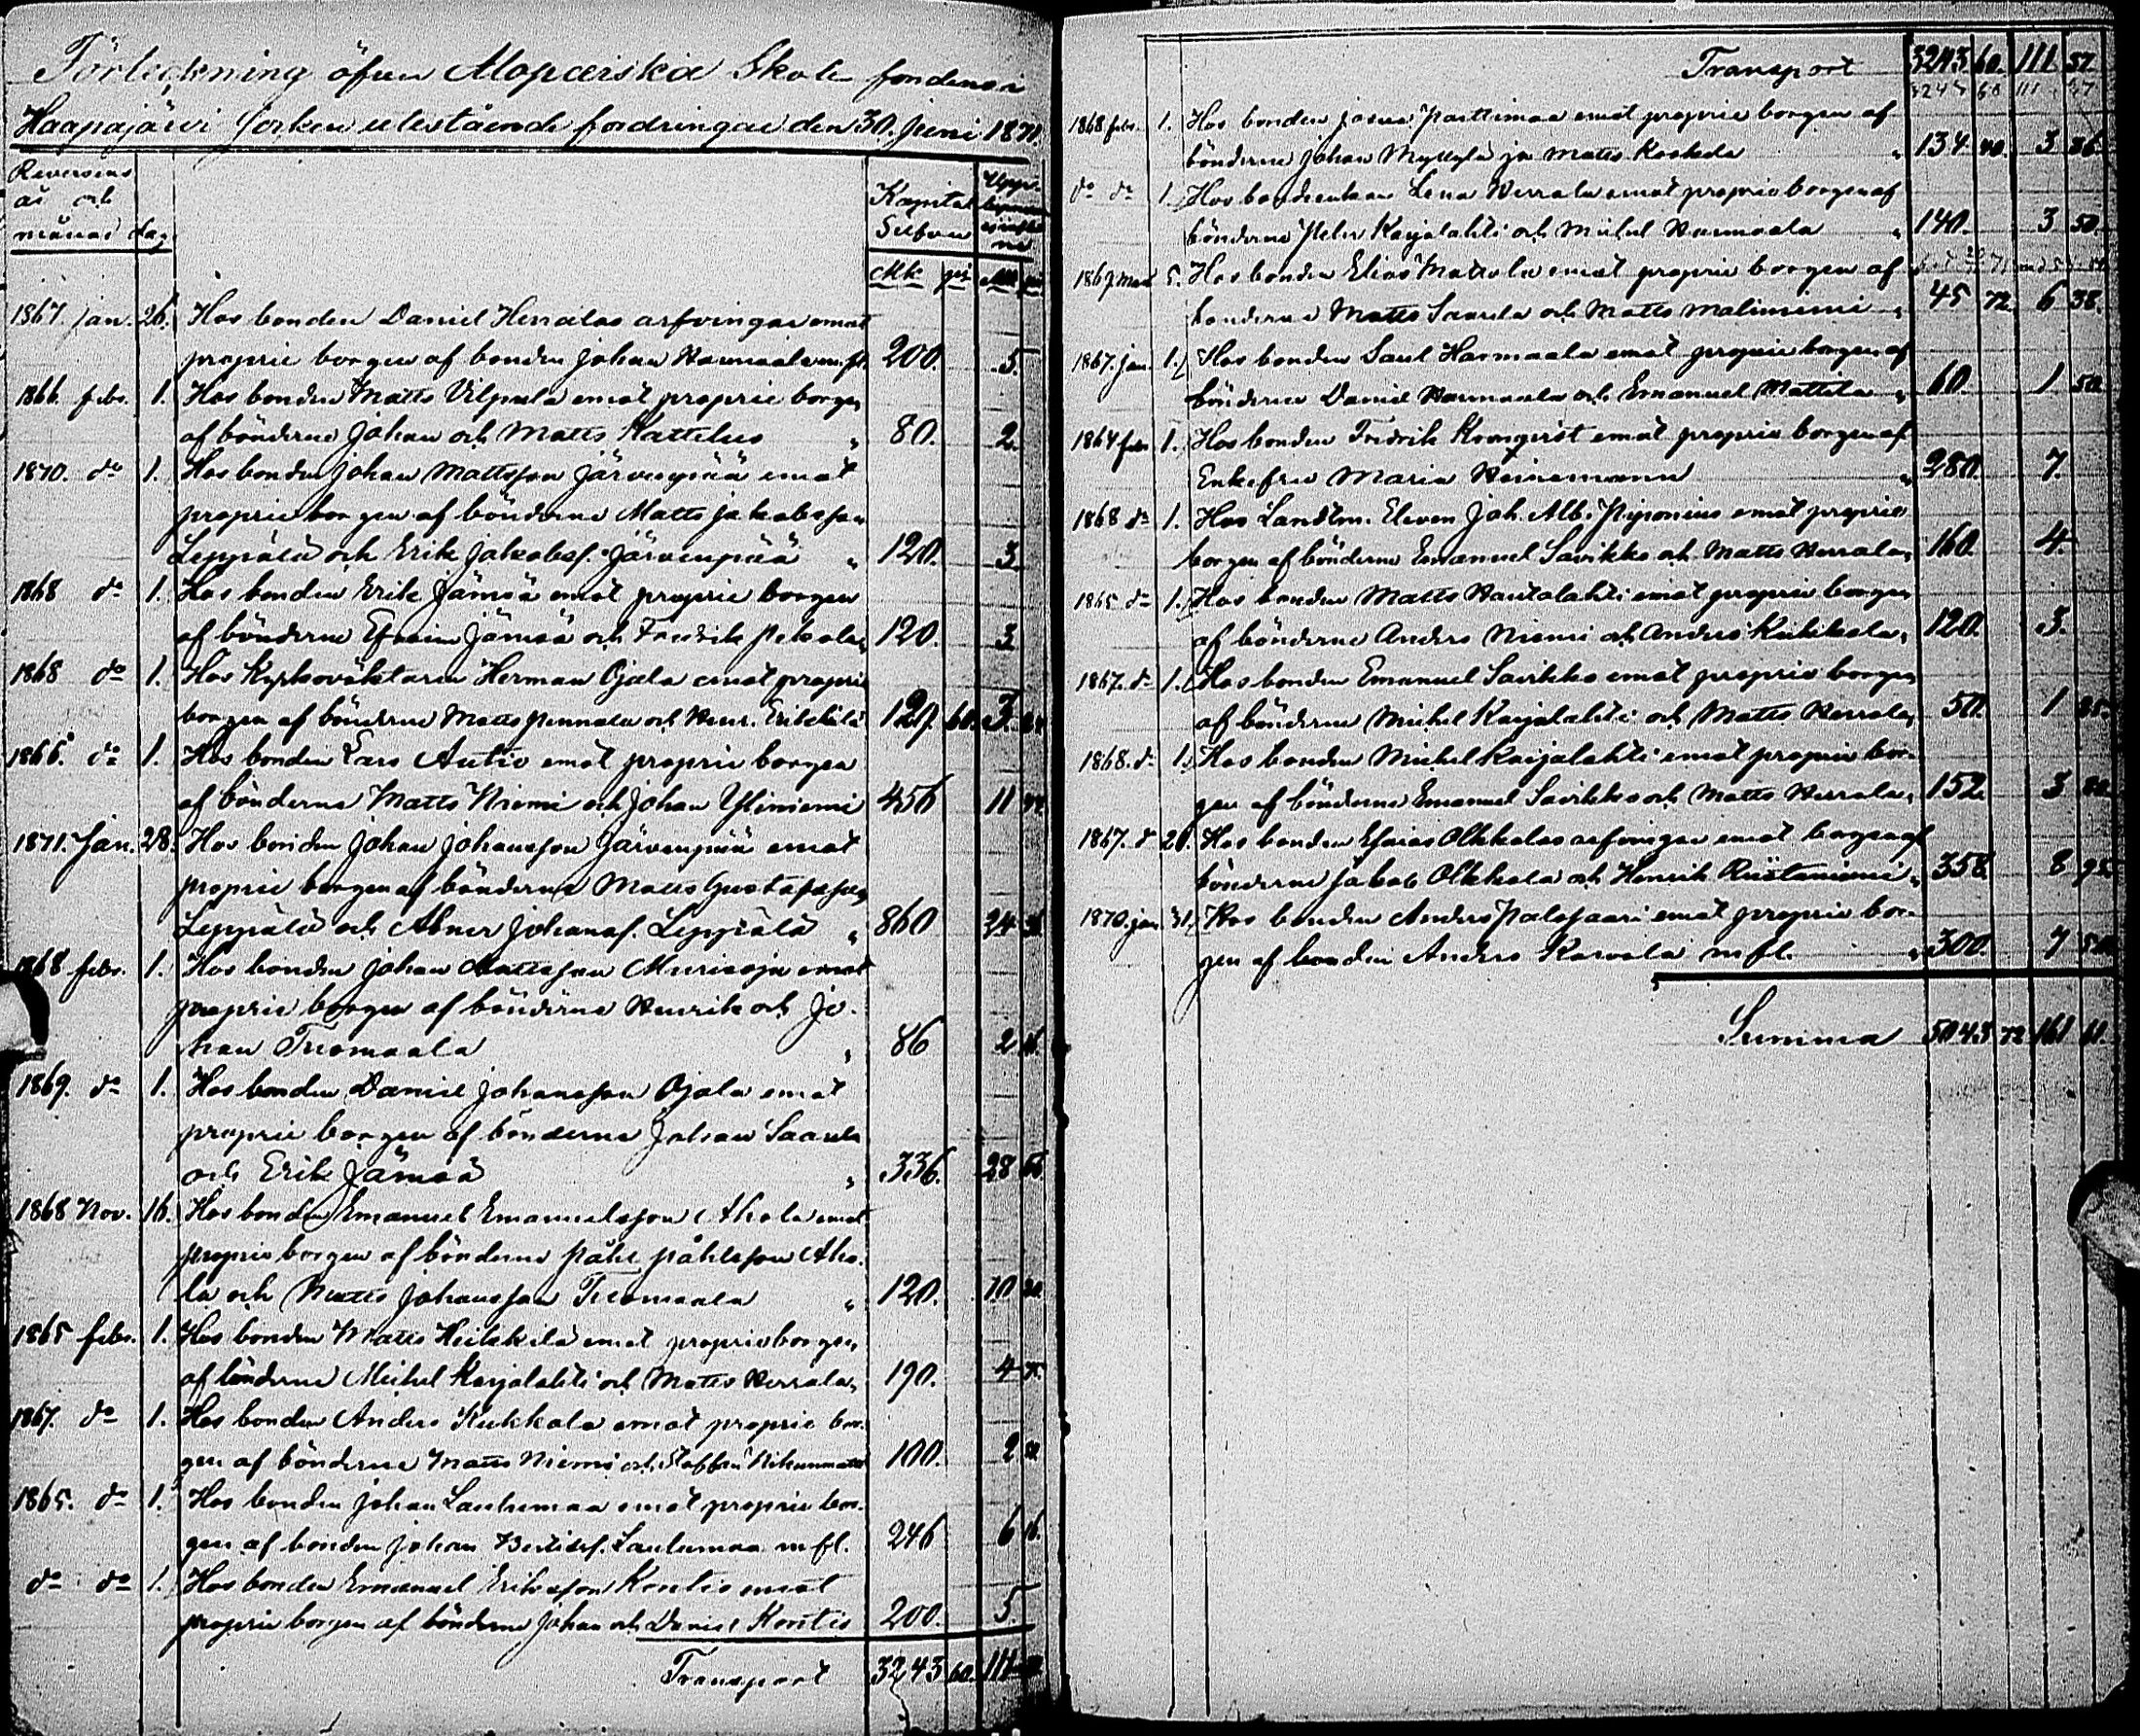 Förteckning öfver Alopæiska Skole fondens i
Haapajärvi socken utestående fordringar den 30. Juni 1871.
Reversens
år och
månad dag.
Kapital
Silfver
Upp-
Mk pi Mk pi
1867. jan. 26. Hos bonden Daniel Herralas arfvingar emot
proprie borgen af bonden Johan Haumaala m. fl. 200. 5.
1866. febr. 1. Hos bonden Matts Vilpula emot proprie borgen
af bönderne Johan och Matts Kattelus „ 80. 2.
1870. do 1. Hos bonden Johan Mattsson Järvenpää emot
proprie borgen af bönderne Matts Jakobsson
Leppälä och Erik Jakobsf. Järvenpää „ 120. 3.
1868 do 1. Hos bonden Erik Jämsä emot proprie borgen
af bönderne Efraim Jämsä och Fredrik Pekola „ 120. 3.
1868 do 1. Hos Kyrkoväktaren Herman Ojala emot proprie
borgen af bönderne Matts Pennala och Henr. Erikkilä 129. 60. 3. 24.
1866. do 1. Hos bonden Lars Autio emot proprie borgen
af bönderne Matts Niemi och Johan Yliniemi 456 11
1871. Jan. 28. Hos bonden Johan Johansson Järvenpää emot
proprie borgen af bönderne Matts Gustafsson
Leppälä och Abner Johansf. Leppälä „ 860 24
1868 febr. 1. Hos bonden Johan Mattsson Muriooja emot
proprie borgen af bönderne Henrik och Jo-
han Tuomaala „ 86 2
1869. do 1. Hos bonden Daniel Johansson Ojala emot
proprie borgen af bönderne Johan Saarela
och Erik Jämsä „ 336. 28 56.
1868 Nov. 16. Hos bonden Emanuel Emanuelsson Ahola emot
proprie borgen af bönderne Påhl Påhlsson Aho-
la och Matts Johansson Tuomaala „ 120. 10 20.
1865 febr. 1. Hos bonden Matts Heikkilä emot proprie borgen
af bönderne Michel Karjalahti och Matts Herrala „ 190. 4
1867. do 1. Hos bonden Anders Kukkola emot proprie bor-
gen af bönderne Matts Niemi och Staffan 100. 2
1865. do 1. Hos bonden Johan Lauhumaa emot proprie bor-
gen af bonden Johan Bertilsf. Lauhumaa m. fl. 246 6
do do 1. Hos bonden Emanuel Eriksson Kontio emot
proprie borgen af bönderne Johan och Daniel Kontio 200. 5.
Transport 3243 60. 111
Transport 3243 60. 111 57
3243 60 111 57
1868 febr. 1. Hos bonden Josua Parttimaa emot proprie borgen af
bönderne Johan Myllylä ja Matts Koskela „ 134 40. 3 36.
do do 1. Hos bondeenkan Lena Herrala emot proprie borgen af
bönderne Peter Karjalahti och Michel Haumaala „ 140. 3 50.
1869 Mars 5. Hos bonden Elias Mattila emot proprie borgen af
bönderne Matts Saarela och Matts Maliniemi „ 45 72 6 38.
1867. jan. 1. Hos bonden Saul Haumaala emot proprie borgen af
bönderne Daniel Haumaala och Emanuel Mattila „ 60. 1 50.
1864 febr. 1. Hos bonden Fredrik Kronqvist emot proprie borgen af
Enkefru Maria Heinemann „ 280. 7.
1868 do 1. Hos Landtm. Eleven Joh. Alb. Piponius emot proprie
borgen af bönderne Emanuel Savikko och Matts Herrala „ 160. 4.
1865 do 1. Hos bonden Matts Hautalahti emot proprie borgen
af bönderne Anders Niemi och Anders Kukkola „ 120. 3.
1867. do 1. Hos bonden Emanuel Savikko emot proprie borgen
af bönderne Michel Karjalahti och Matts Herrala „ 50. 1 25.
1868. do 1. Hos bonden Michel Karjalahti emot proprie bor-
gen af bönderne Emanuel Savikko och Matts Herrala „ 152. 3 80.
1867. do 20. Hos bonden Esaias Olkkolas arfvingar emot borgen af
bönderne Jakob Olkkola och Henrik Ristaniemi „ 358. 8 95.
1870. jan. 31. Hos bonden Anders Palosaari emot proprie bor-
gen af bonden Anders Karvola m. fl. „ 300. 7 50.
Summa 5043 72 161 61.